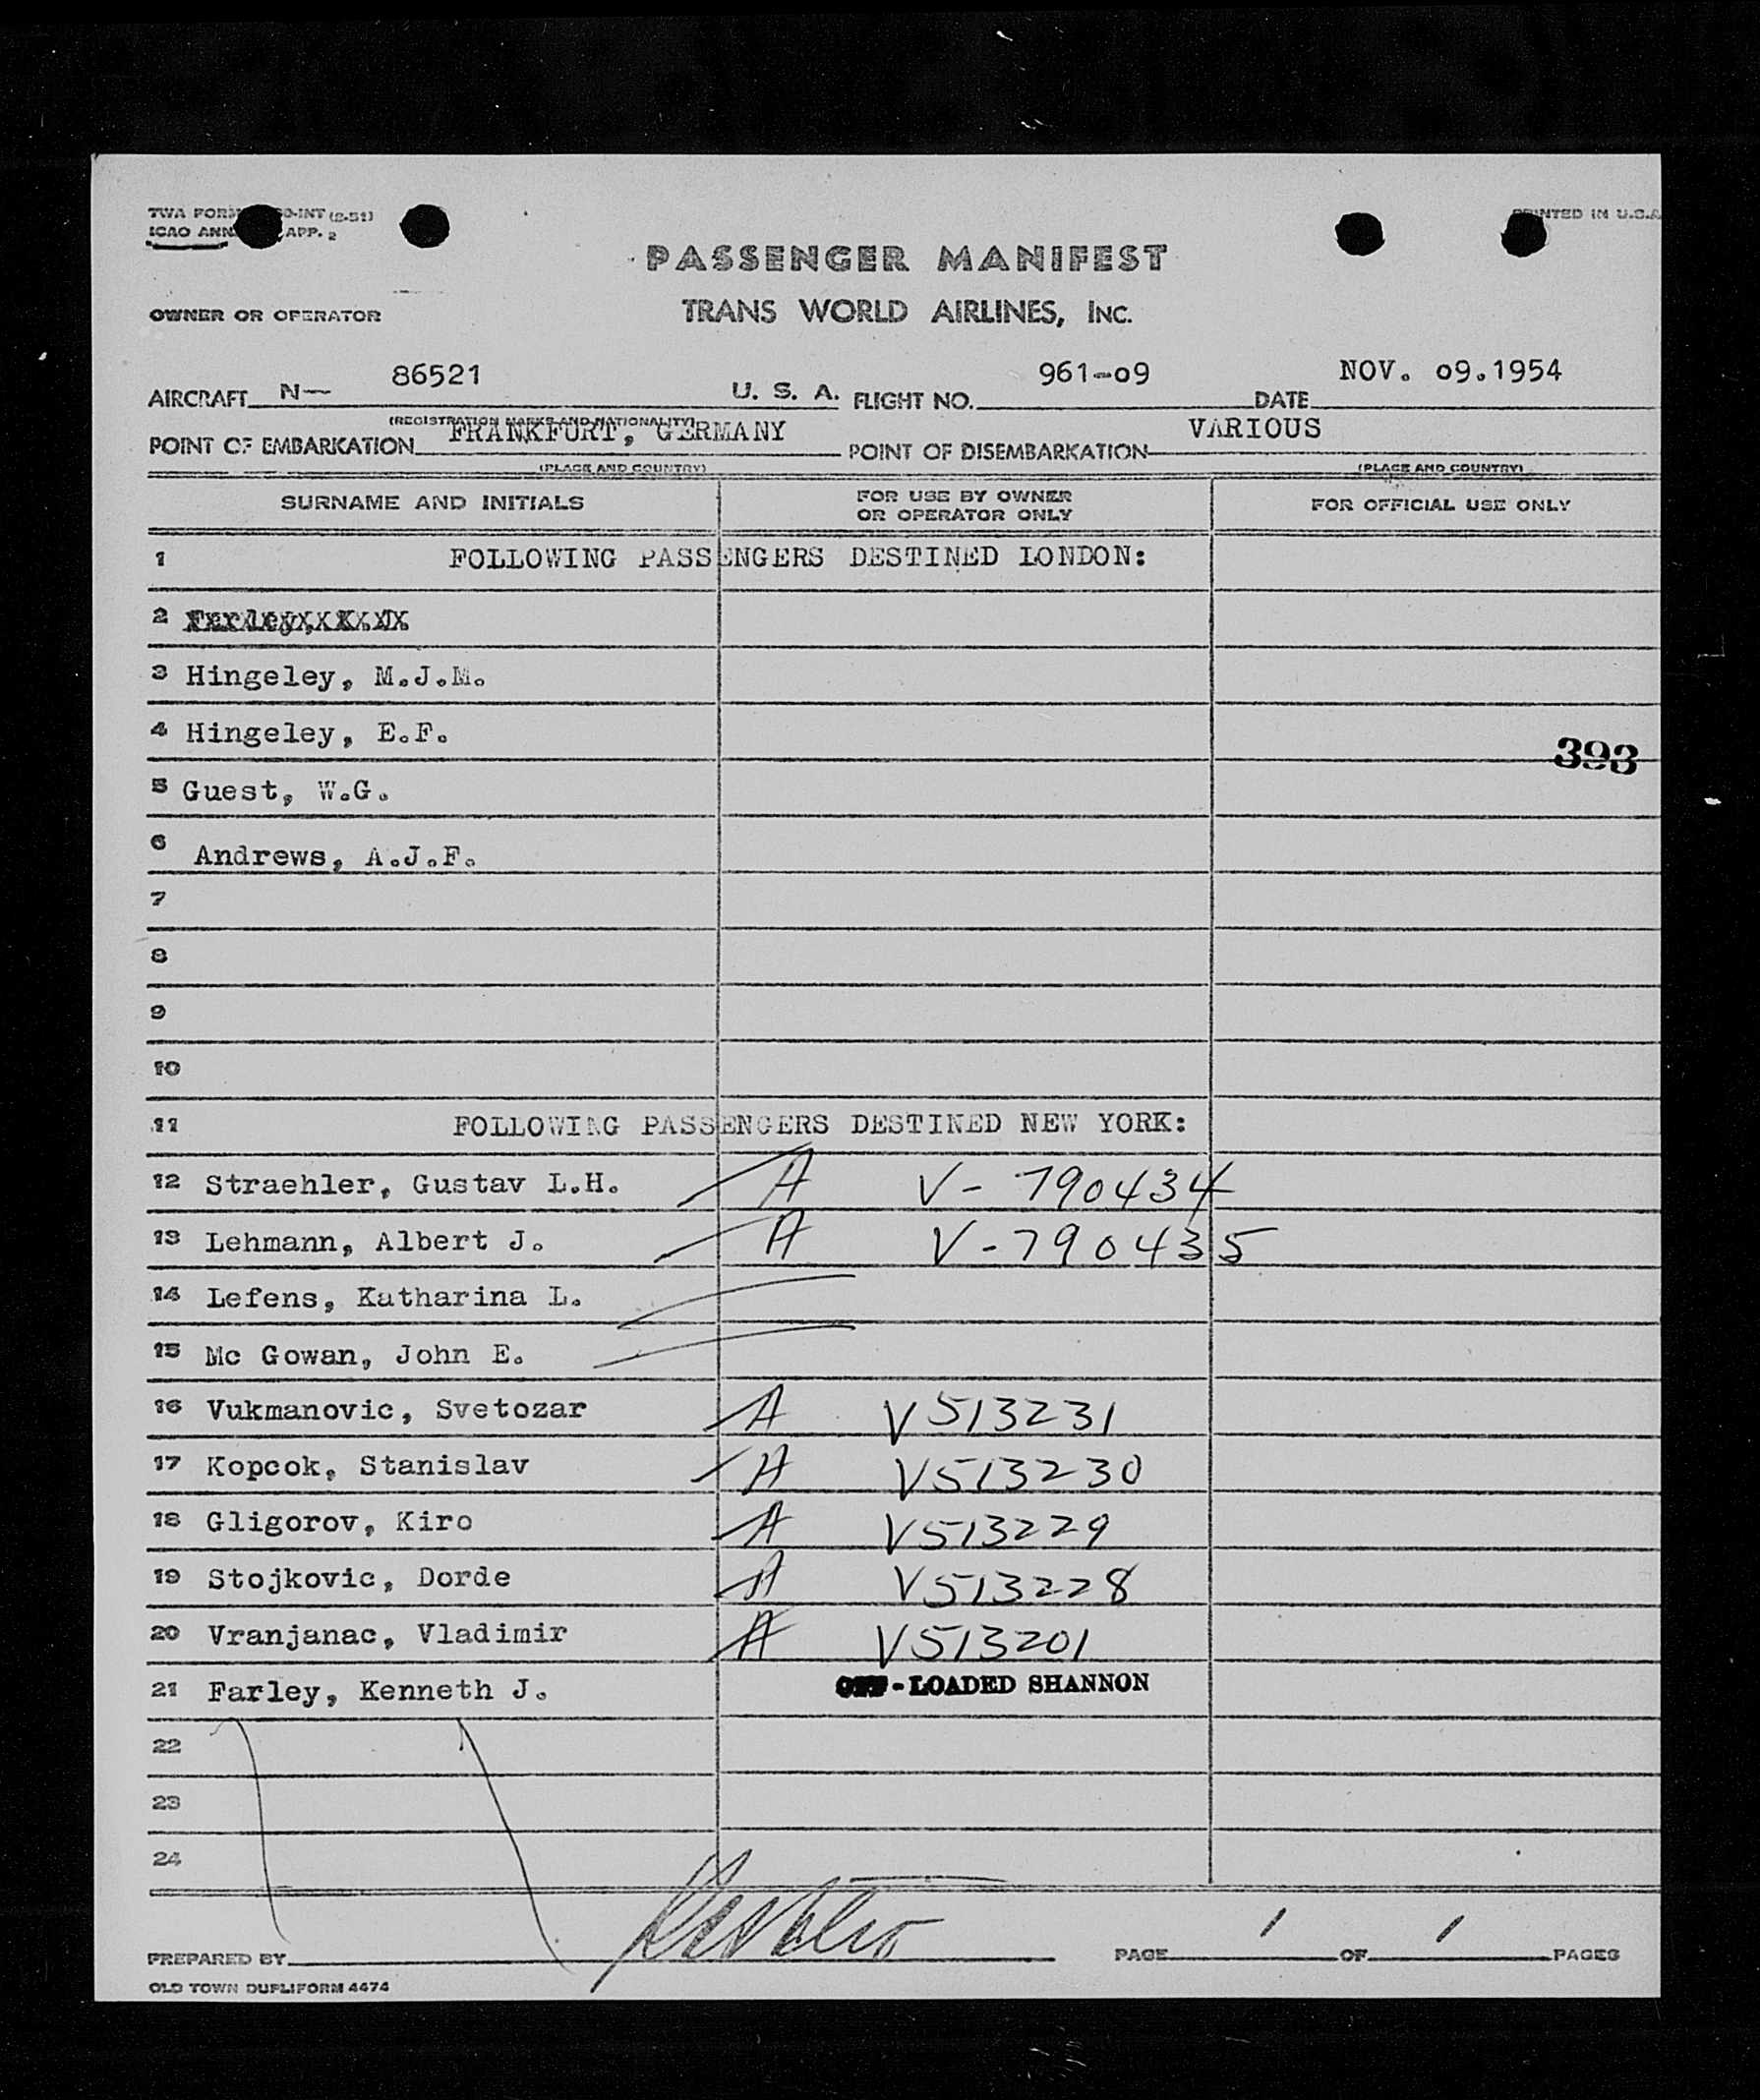 (2-51)
APP. 2
PRINTED IN U.S.A
PASSENGER MANIFEST
OWNER OR OPERATOR
TRANS WORLD AIRLINES, INC.
AIRCRAFT N— 86521 U. S. A. FLIGHT NO. 961-09 DATE NOV. 09.1954
(REGISTRATION MARKS AND NATIONALITY)
POINT OF EMBARKATION FRANKFURT, GERMANY POINT OF DISEMBARKATION VARIOUS
(PLACE AND COUNTRY) (PLACE AND COUNTRY)
SURNAME AND INITIALS FOR USE BY OWNER OR OPERATOR ONLY FOR OFFICIAL USE ONLY
1 FOLLOWING PASSENGERS DESTINED LONDON:
2
3 Hingeley, M.J.M.
4 Hingeley, E.F.
393
5 Guest, W.G.
6 Andrews, A.J.F.
7
8
9
10
11 FOLLOWING PASSENGERS DESTINED NEW YORK:
12 Straehler, Gustav L.H. A V- 790434
13 Lehmann, Albert J. A V-790435
14 Lefens, Katharina L.
15 Mc Gowan, John E.
16 Vukmanovic, Svetozar A V513231
17 Kopcok, Stanislav A V513230
18 Gligorov, Kiro A V513229
19 Stojkovic, Dorde A V513228
20 Vranjanac, Vladimir A V513201
21 Farley, Kenneth J. OFF-LOADED SHANNON
22
23
24
PREPARED BY PAGE 1 OF 1 PAGES
OLD TOWN DUPLIFORM 4474